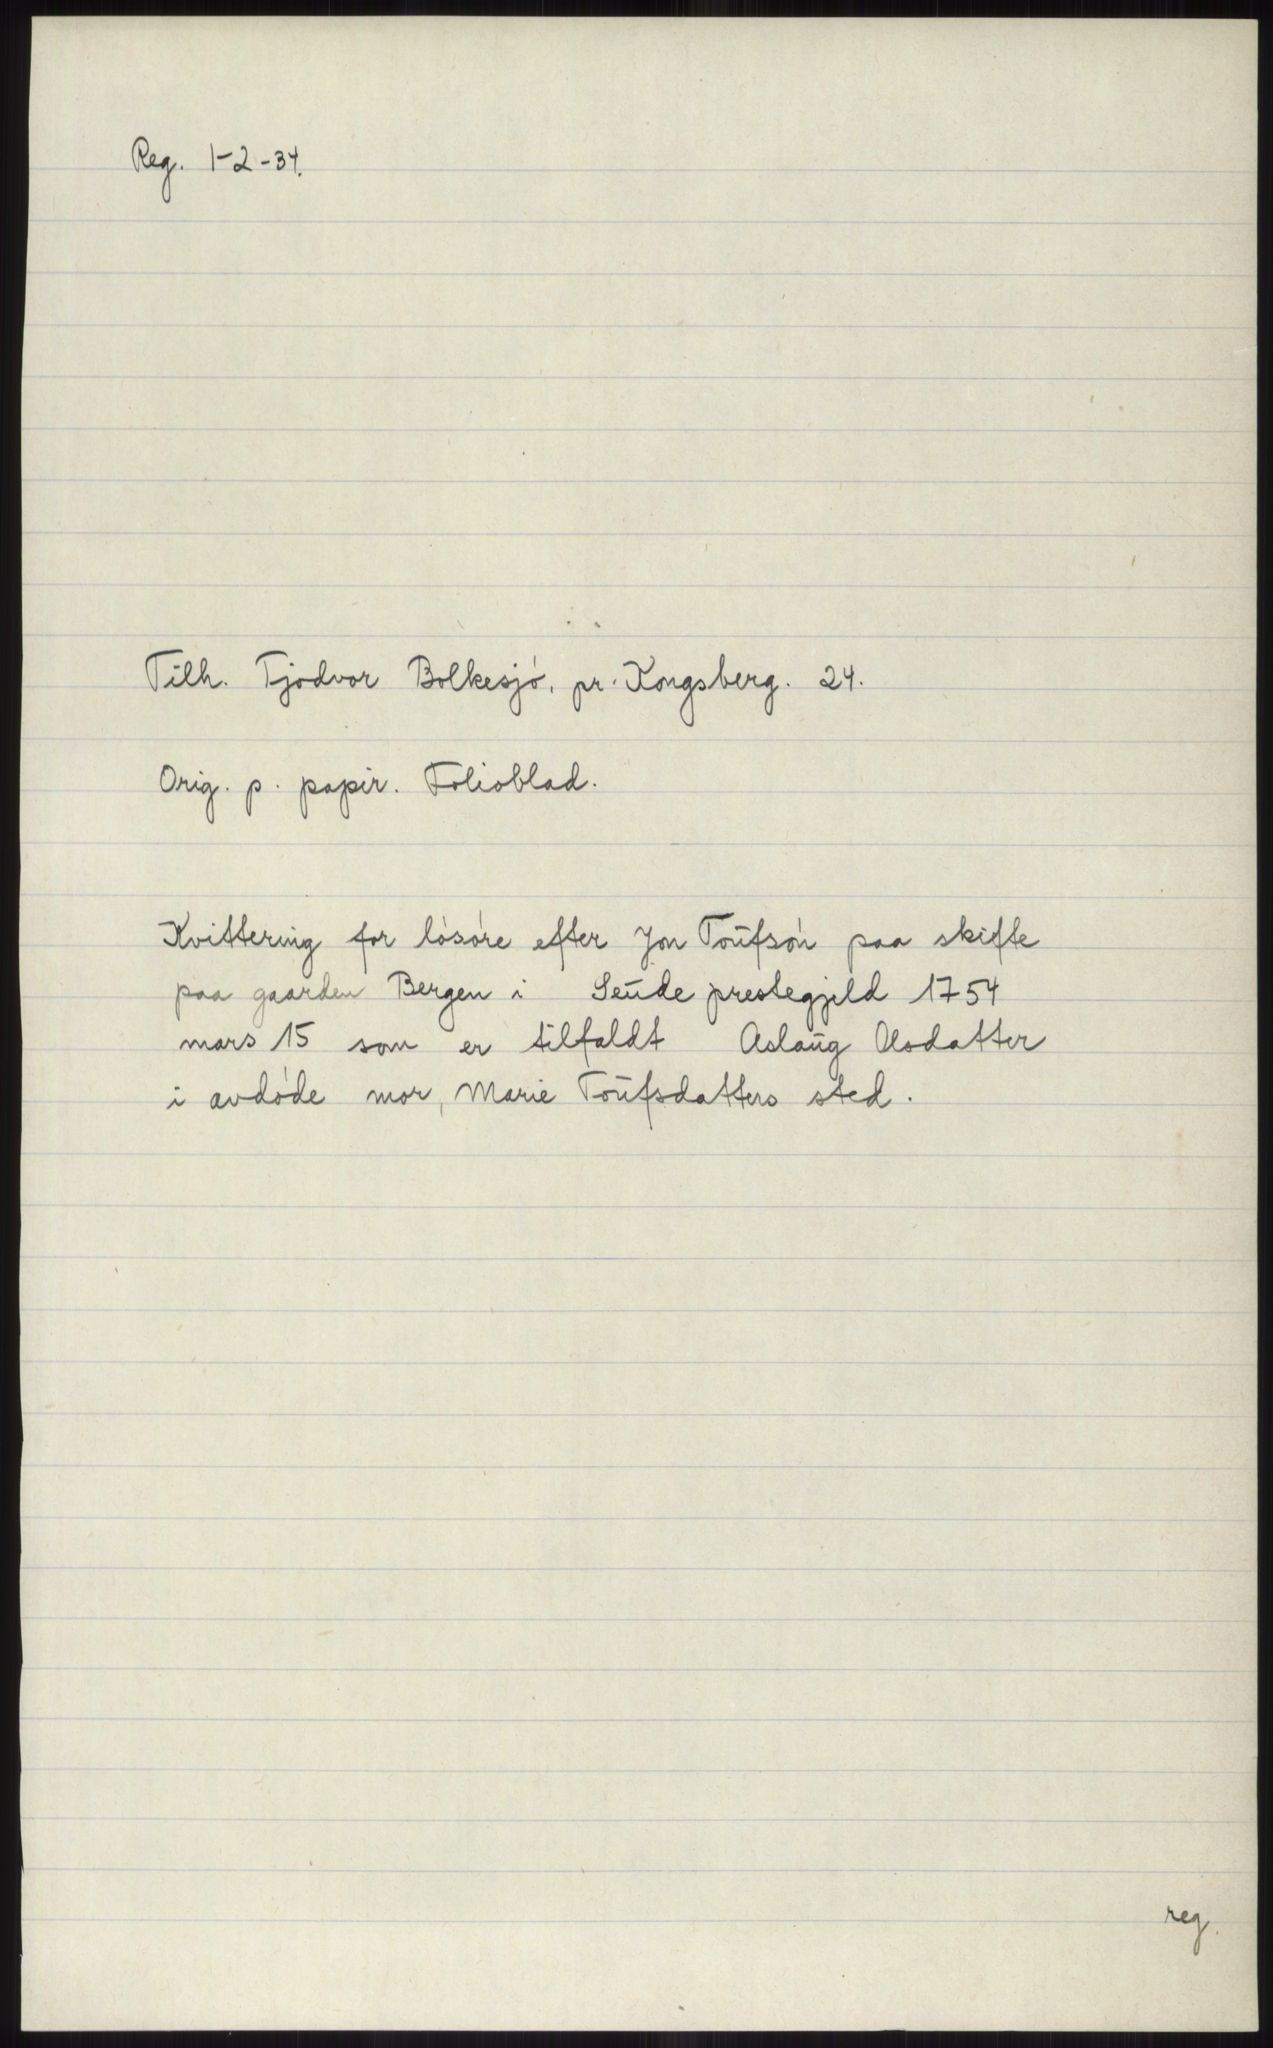 Reg. 1-2-34.
Tilh. Tjodvor Bolkesjø, pr. Kongsberg. 24.
Orig. p. papir. Folioblad.
Kvittering for løsøre efter Jon Toufsøn paa skifte
paa gaarden Bergen i Seude prestegjeld 1754
mars 15 som er tilfaldt Aslaug Olsdatter
i avdøde mor, Marie Toufsdatters sted.
reg.